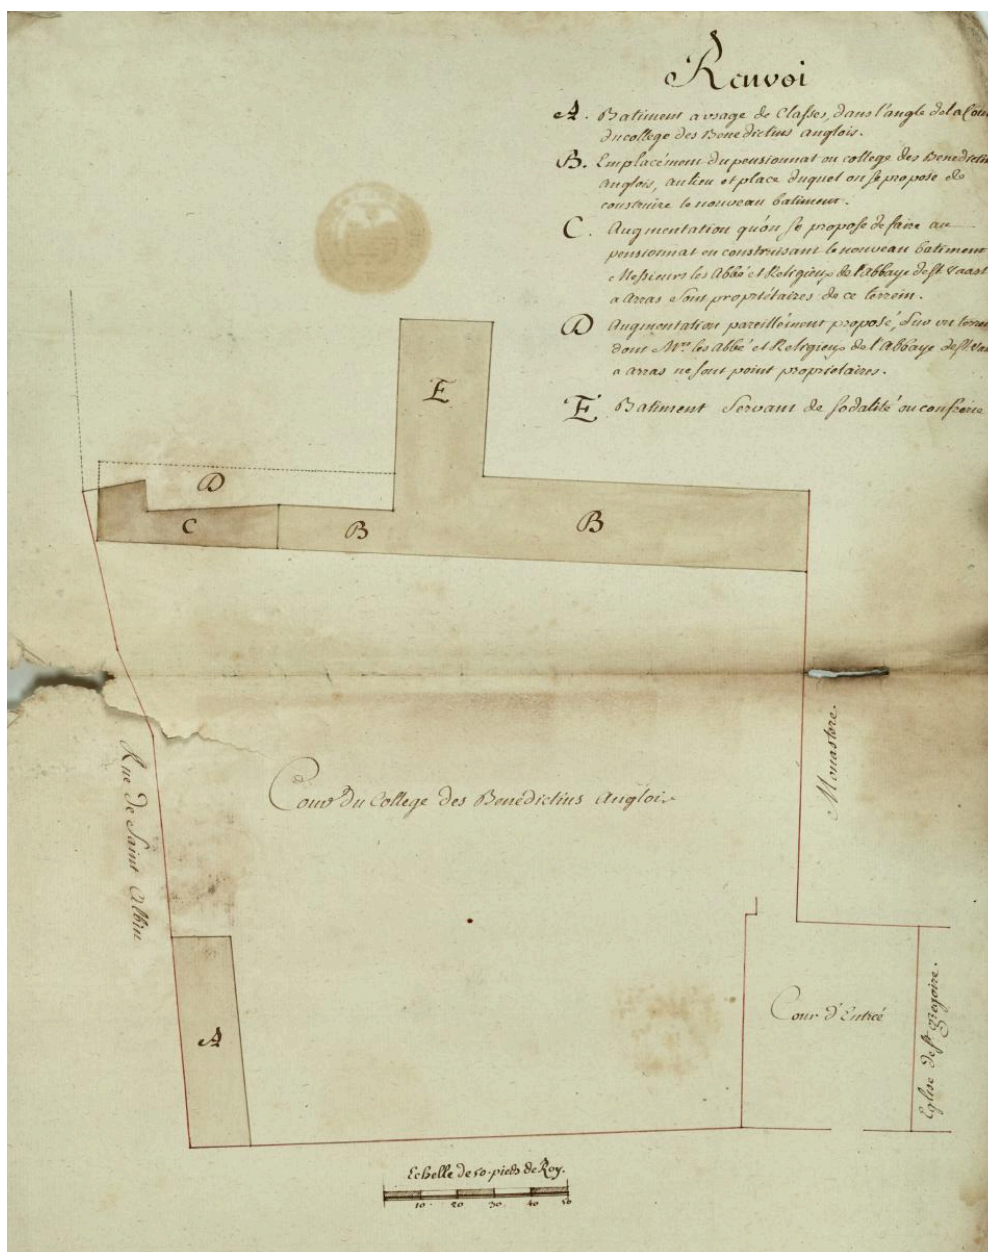 Renvoi
A. Batiment a usage de Classes, dans l'angle de la Cour
du college des Bénédictins anglois.
B. Emplacément du pensionnat ou college des Benedictins
Anglois, au lieu et place duquel on se propose de
construire le nouveau batiment.
C. Augmentation qu'on se propose de faire au
pensionnat en construisant le nouveau batiment
Messieurs les Abbé et Religieux de l'Abbaye de St. Vaast
a Arras sont propriétaires de ce terrein.
D Augmentation pareillément proposé, sur un terrein
dont Mrs. les Abbé et Religieux de l'Abbaye de St. Vaast
a Arras ne sont point propriétaires.
E Batiment Servant de sodalité ou confrerie
E
D
C
B
B
Rue de Saint Albin
Cour Du College des Benédictins Anglois
Monastere.
A
Cour d'Entreé
Eglise de St. Gregoire.
Echelle de 50. pieds de Roy.
10 20 30 40 50